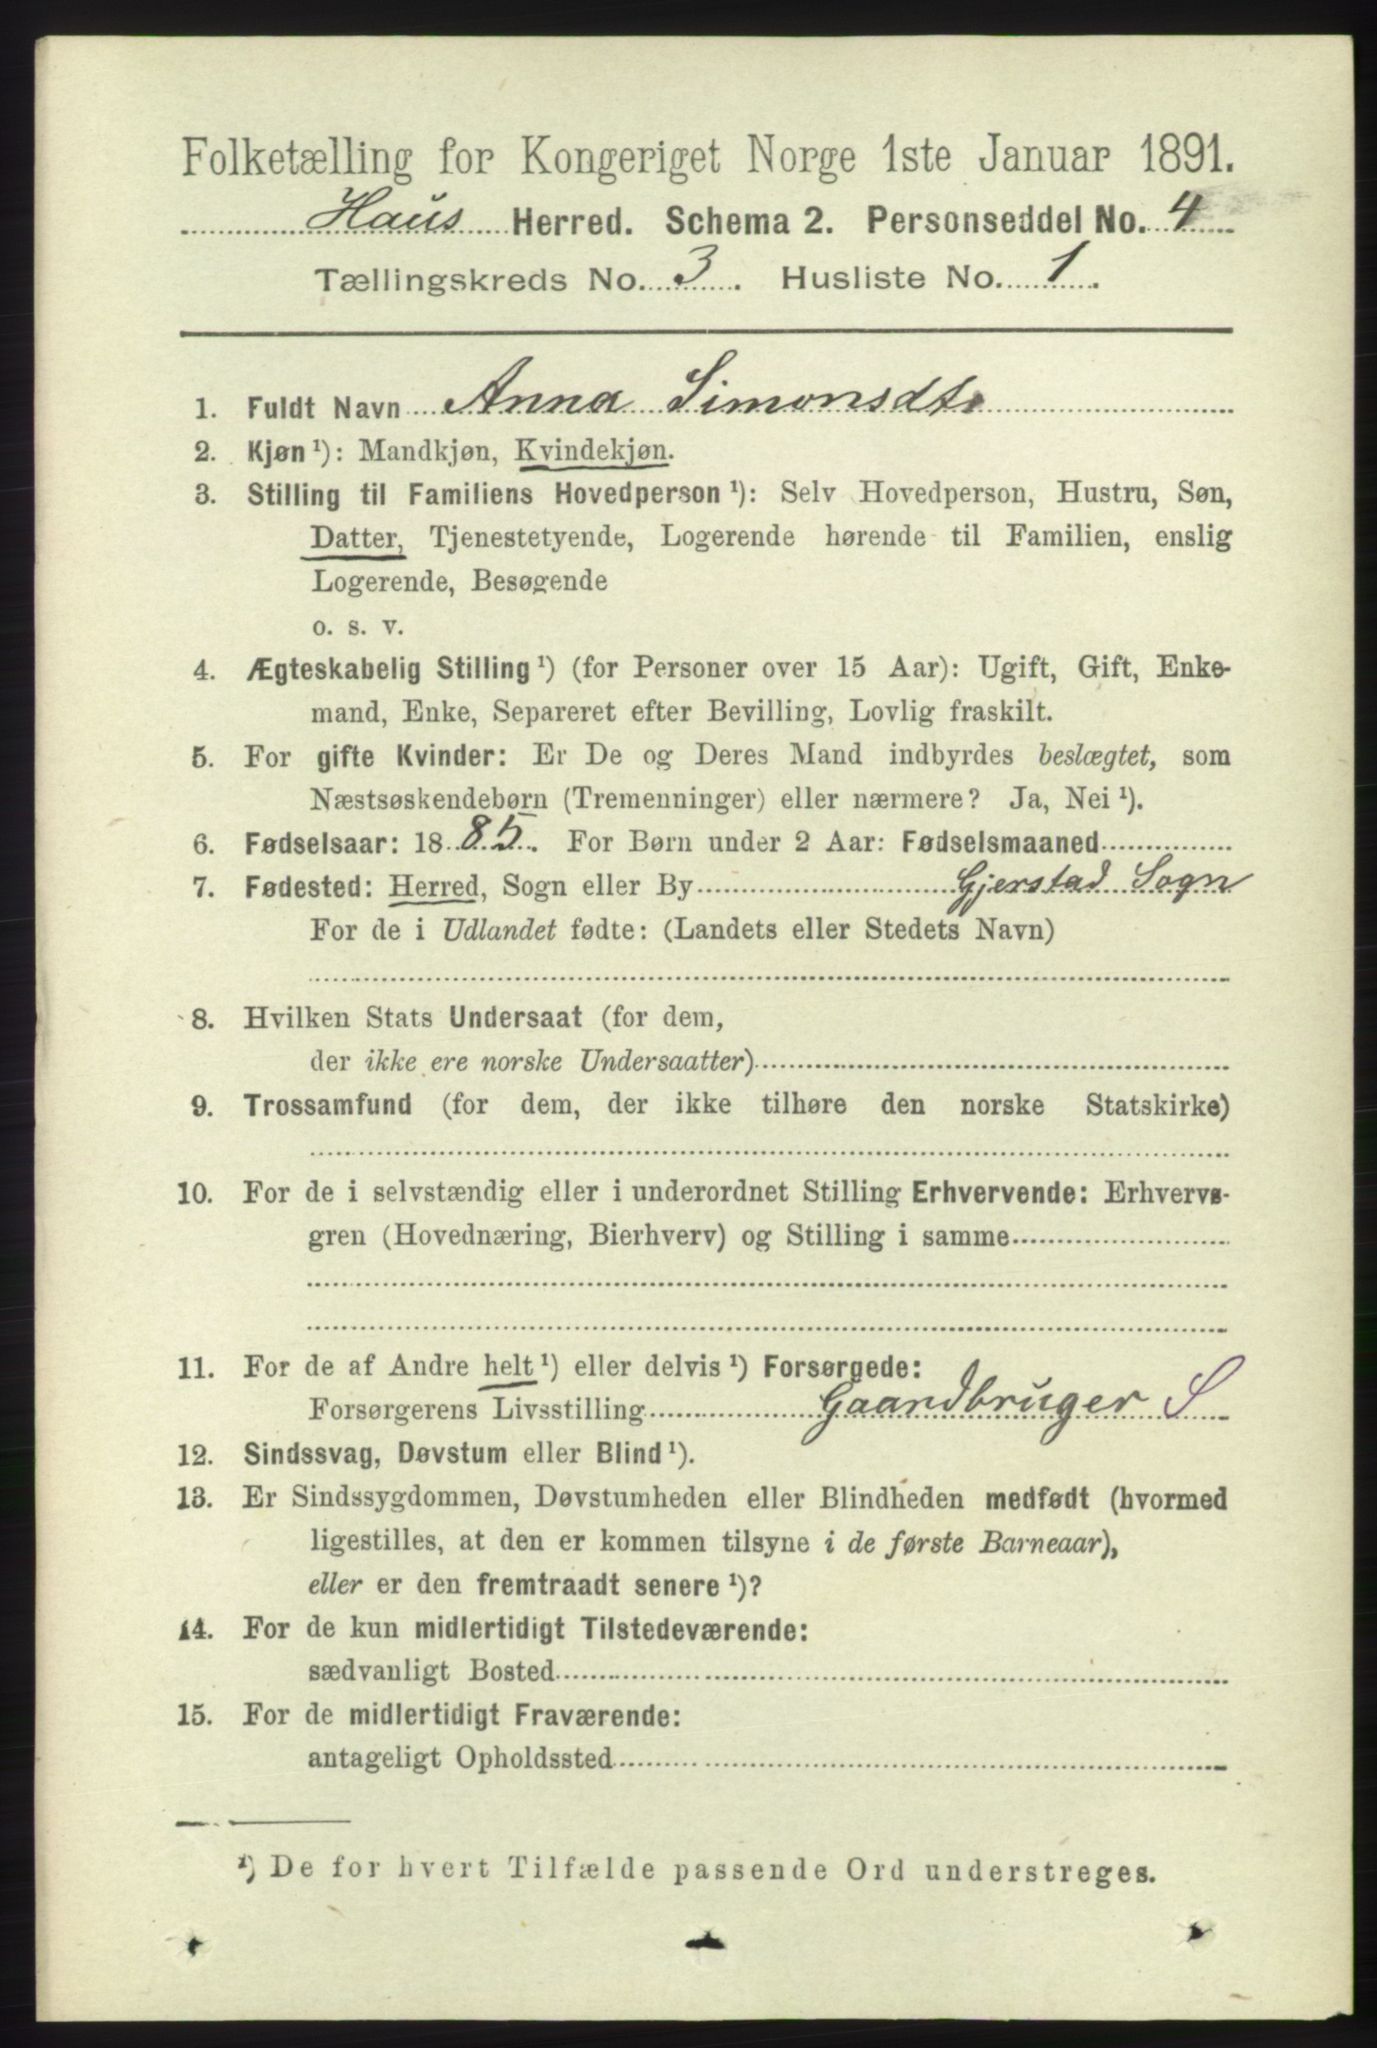 Folketælling for Kongeriget Norge 1ste Januar 1891.
Haus Herred. Schema 2. Personseddel No. 4
Tællingskreds No. 3. Husliste No. 1.
1. Fuldt Navn Anna Simonsdtr
2. Kjøn ¹): Mandkjøn, Kvindekjøn.
3. Stilling til Familiens Hovedperson ¹): Selv Hovedperson, Hustru, Søn,
Datter, Tjenestetyende, Logerende hørende til Familien, enslig
Logerende, Besøgende
o. s. v.
4. Ægteskabelig Stilling ¹) (for Personer over 15 Aar): Ugift, Gift, Enke-
mand, Enke, Separeret efter Bevilling, Lovlig fraskilt.
5. For gifte Kvinder: Er De og Deres Mand indbyrdes beslægtet, som
Næstsøskendebørn (Tremenninger) eller nærmere? Ja, Nei ¹).
6. Fødselsaar: 1885. For Børn under 2 Aar: Fødselsmaaned
7. Fødested: Herred, Sogn eller By Gjerstad Sogn
For de i Udlandet fødte: (Landets eller Stedets Navn)
8. Hvilken Stats Undersaat (for dem,
der ikke ere norske Undersaatter)
9. Trossamfund (for dem, der ikke tilhøre den norske Statskirke)
10. For de i selvstændig eller i underordnet Stilling Erhvervende: Erhvervs-
gren (Hovednæring, Bierhverv) og Stilling i samme
11. For de af Andre helt ¹) eller delvis ¹) Forsørgede:
Forsørgerens Livsstilling Gaardbruger S
12. Sindssvag, Døvstum eller Blind ¹).
13. Er Sindssygdommen, Døvstumheden eller Blindheden medfødt (hvormed
ligestilles, at den er kommen tilsyne i de første Barneaar),
eller er den fremtraadt senere ¹)?
14. For de kun midlertidigt Tilstedeværende:
sædvanligt Bosted
15. For de midlertidigt Fraværende:
antageligt Opholdssted
¹) De for hvert Tilfælde passende Ord understreges.